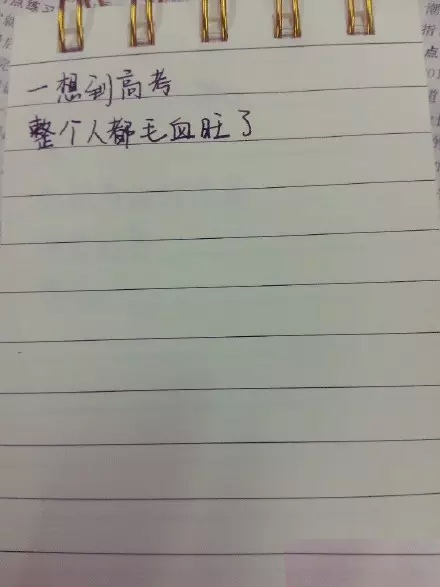 一想到高考
整个人都毛血旺了
点练习